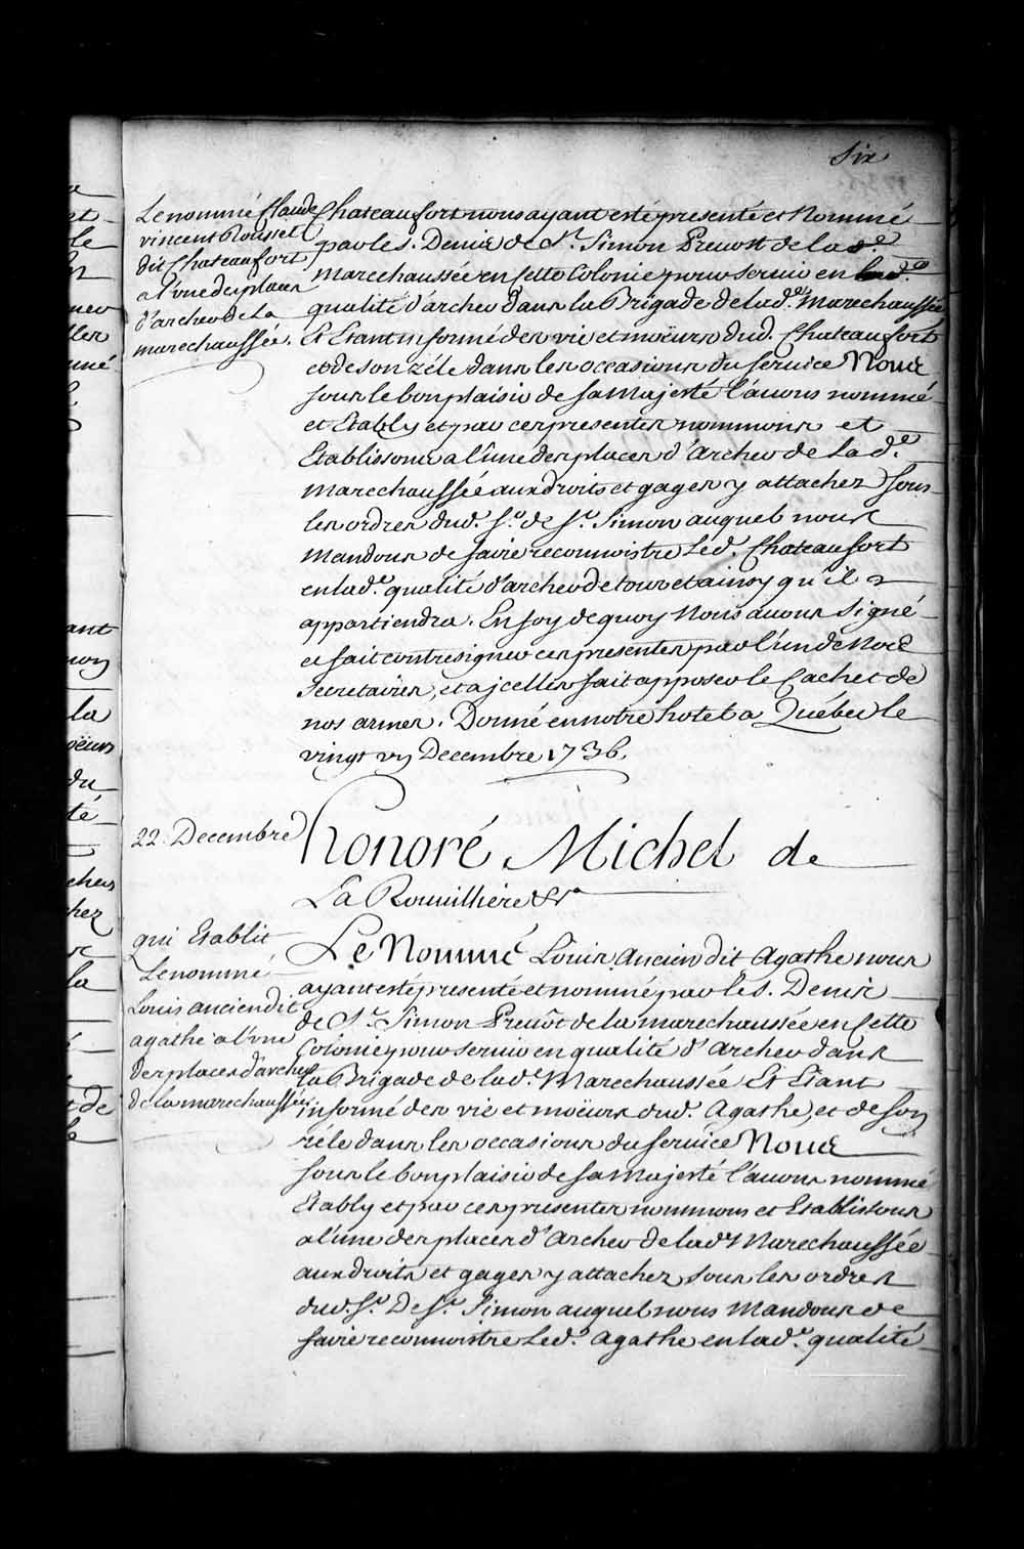 Six
Le nommé Claude
vincent Rousset
dit Chateaufort
a l'vne des places
d'archer de la
marechaussée.
Chateaufort nous ayant esté presenté et Nommé
par le s. Denis de St. Simon Prevost de lad.e
Marechaussée en Cette Colonie pour servir en
qualité d'archer dans la Brigade de lad.e Marechaussée
Et Etant informé des vie et moeurs dud. Chateaufort
et de son zéle dans les occasions du service Nous
sous le bon plaisir de sa Majesté l'avons nommé
et Etably et par ces presentes nommons et
Etablissons a l'une des places d'Archer de la d.e
Marechaussée aux droits et gages y attachez sous
les ordres dud. Sr. de St. Simon auquel nous
Mandons de faire reconnoistre led. Chateaufort
en lad.e qualité d'archer de tous et ainsy qu'il
appartiendra. En foy de quoy Nous avons signé
et fait contresigner ces presentes par l'un de Nos
Secretaires, et a jcelles fait apposer le Cachet de
nos armes. Donné en notre hotel a Québec le
vingt vn Decembre 1736.
22 Decembre
honoré Michel de
La Rouvilliere &a
qui Etablit
Le nommé
Louis ancien dit
agathe a l'vne
des places d'archer
de la marechaussée
Le Nommé Louis Ancien dit Agathe nous
ayant esté presenté et nommé par le s. Denis
de St. Simon Prevôt de la marechaussée en Cette
Colonie pour servir en qualité d'Archer dans
la Brigade de lad.e Marechaussée Et Etant
informé des vie et moeurs dud. Agathe, et de son
zéle dans les occasions du service Nous
sous le bon plaisir de sa Majesté l'avons nommé
Etably et par ces presentes nommons et Etablissons
a l'une des places d'Archer de lad.e Marechaussée
aux droits et gages y attachez sous les ordres
dud. Sr. De St. Simon auquel nous Mandons de
faire reconnoistre Led. Agathe en lad.e qualité